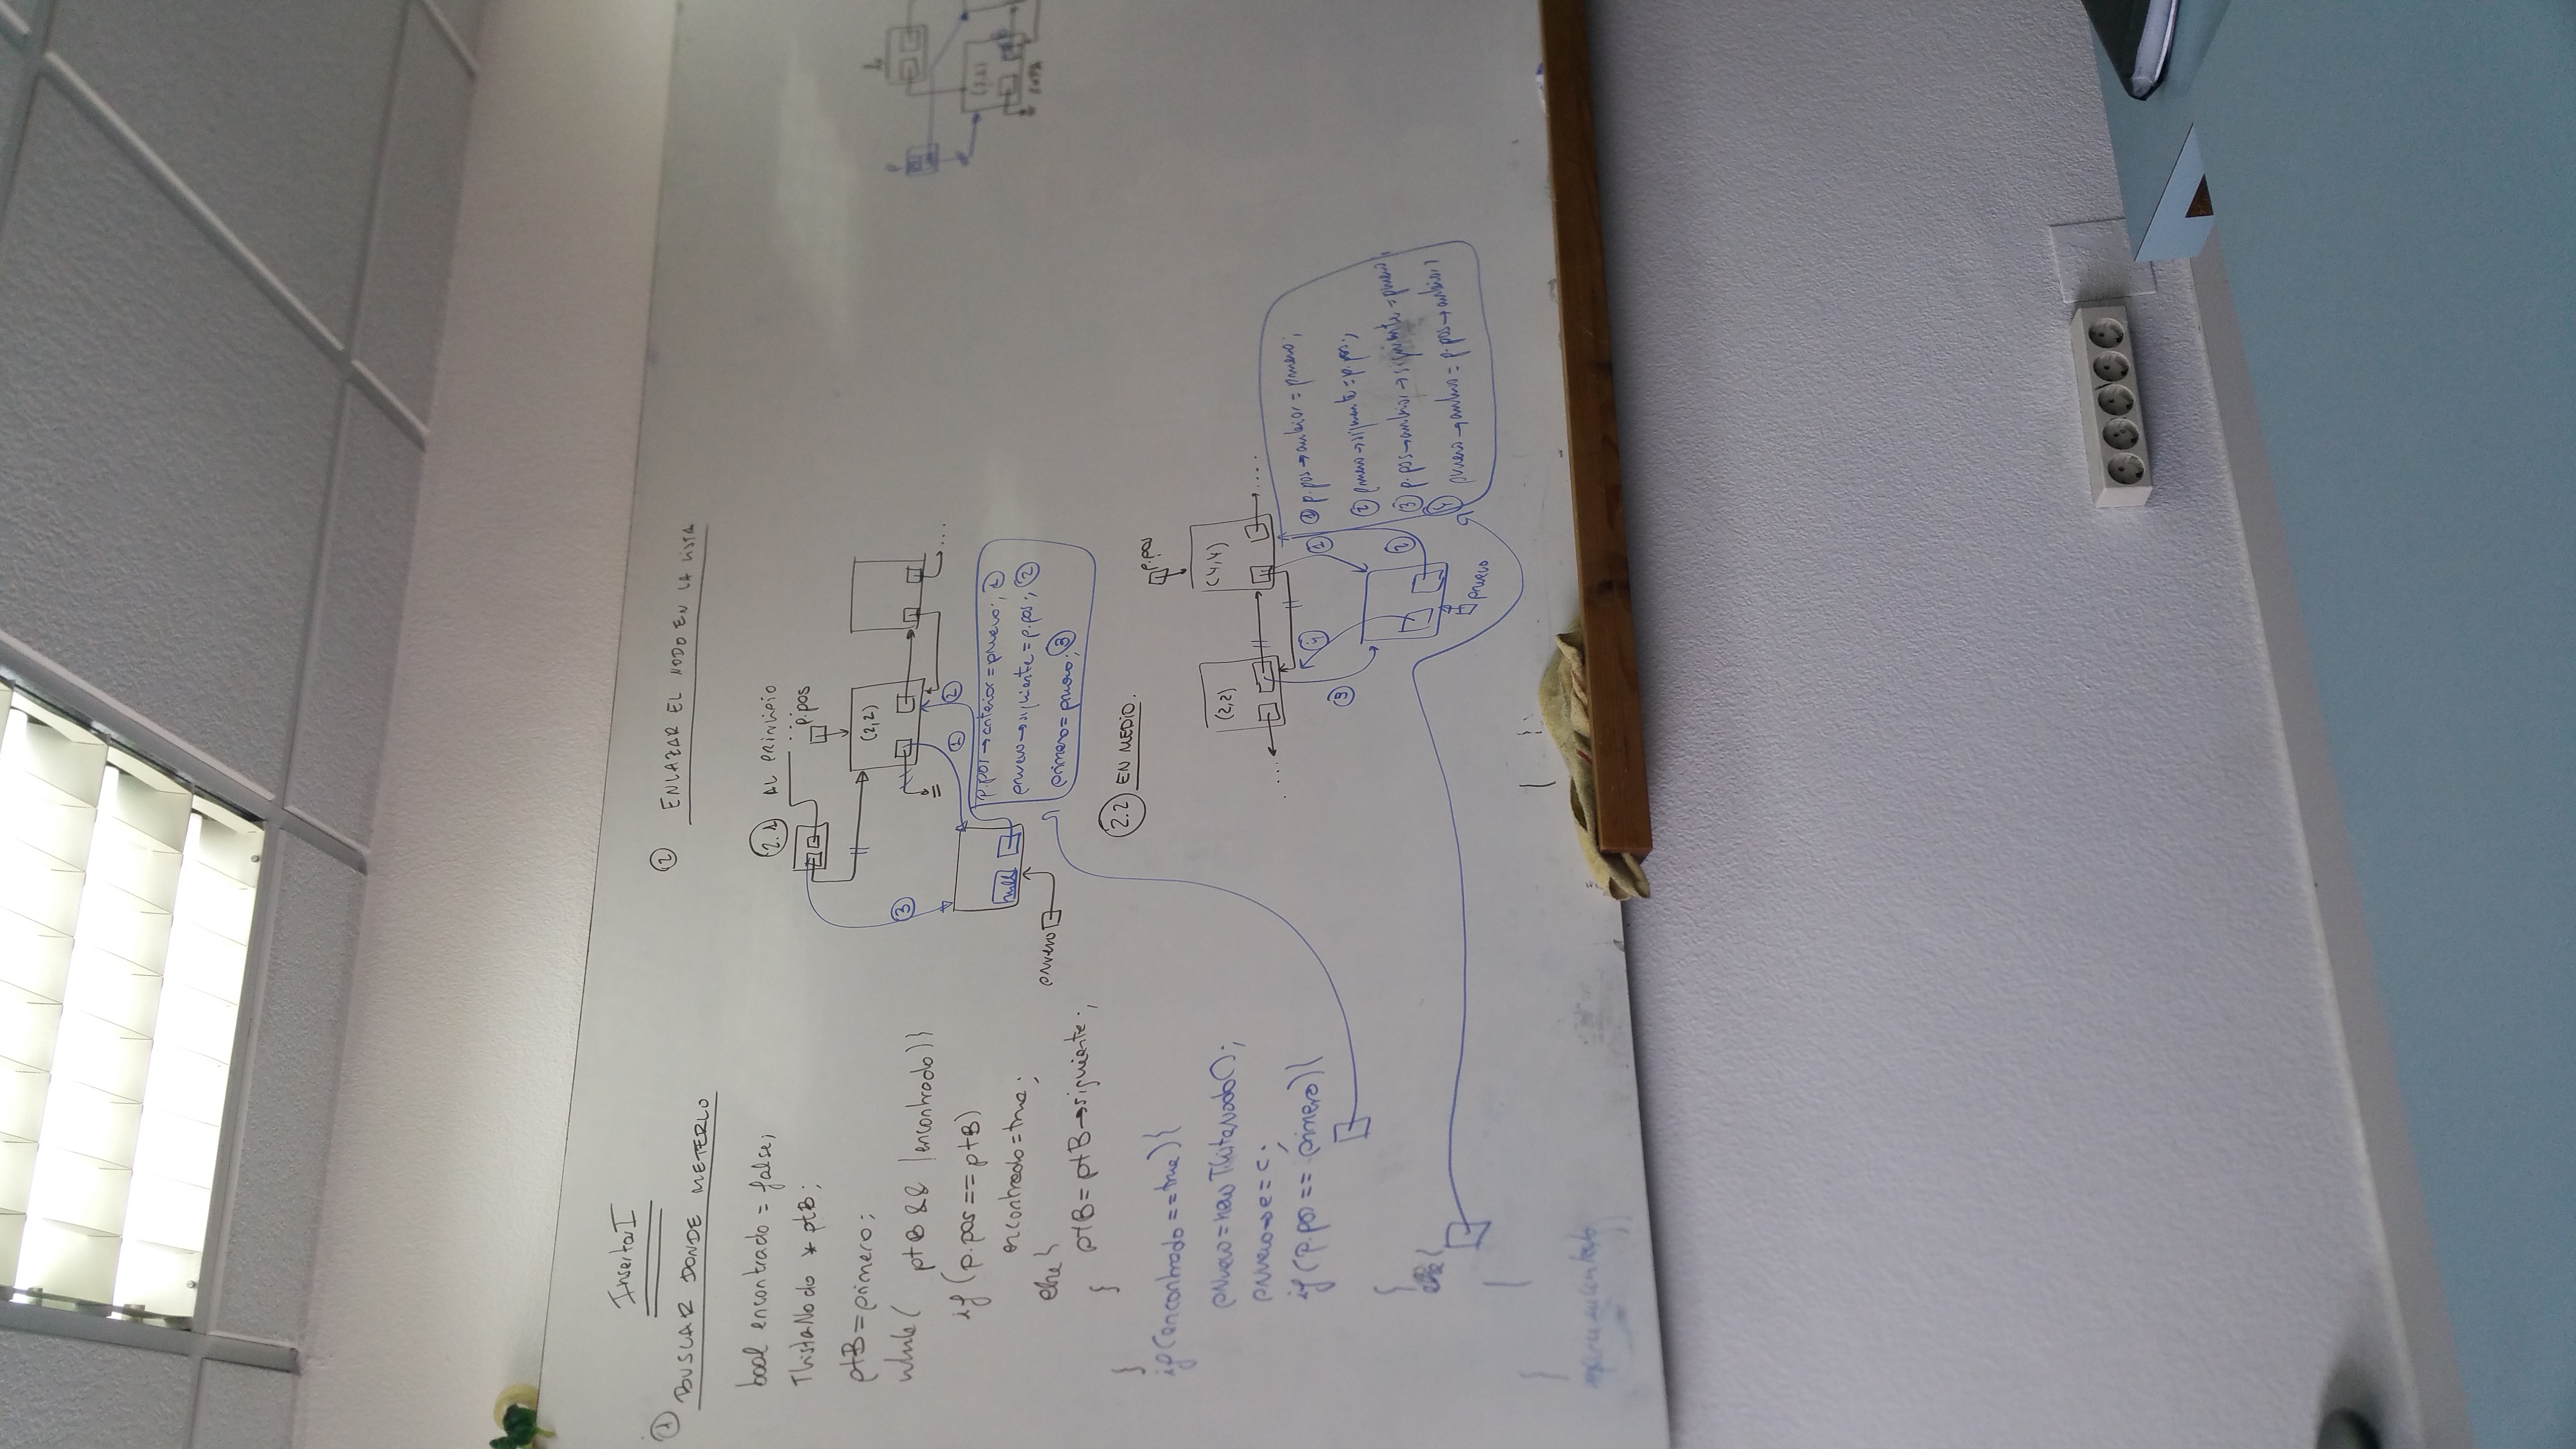 InsertarI
① BUSCAR DONDE METERLO
bool encontrado = false;
TListaNodo * ptB;
ptB = primero;
while( ptB && !encontrado){
if (p.pos == ptB)
encontrado = true;
else{
ptB = ptB→siguiente;
}
}
if(encontrado == true){
pnuevo = new TListaNodo();
pnuevo→e = c;
if (p.pos == primero){
}
else{
② ENLAZAR EL NODO EN LA LISTA
2.1 AL PRINCIPIO
p.pos
③
(2,2)
①
②
pnuevo
null
p.pos→anterior = pnuevo; ①
pnuevo→siguiente = p.pos; ②
primero = pnuevo; ③
2.2 EN MEDIO.
p.pos
(2,2)
(4,4)
③
④
①
②
pnuevo
① p.pos→anterior = pnuevo;
② pnuevo→siguiente = p.pos;
③ p.pos→anterior→siguiente = pnuevo;
④ pnuevo→anterior = p.pos→anterior;